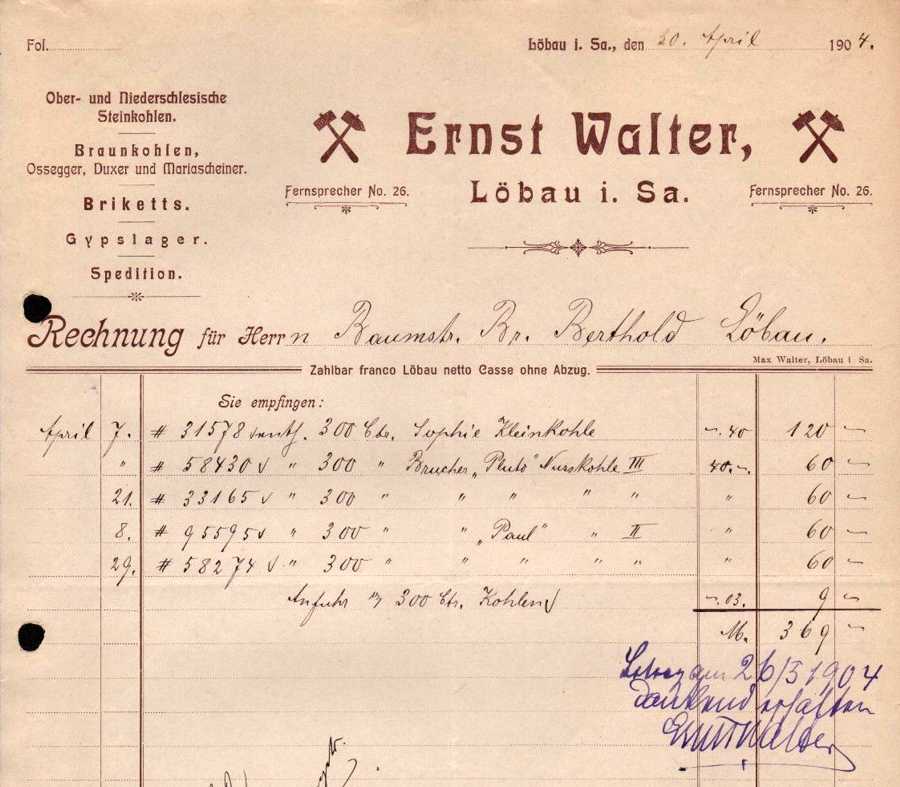 Fol.
Löbau i. Sa., den 30. April 1904.
Ober- und Niederschlesische
Steinkohlen.
Braunkohlen,
Ossegger, Duxer und Mariascheiner.
Briketts.
Gypslager.
Spedition.
Ernst Walter,
Löbau i. Sa.
Fernsprecher No. 26.
Fernsprecher No. 26.
Rechnung für Herrn Baumstr. Br. Berthold Löbau.
Max Walter, Löbau i. Sa.
Zahlbar franco Löbau netto Casse ohne Abzug.
Sie empfingen:
April 7. # 31578 300 Ctr. Sophie Kleinkohle -.40 120 -
" # 58430 " 300 " Brucher „Pluto" Nusskohle III 40.- 60 -
21. # 33165 " 300 " " " " " " 60 -
8. # 95595 " 300 " " „Paul" " II " 60 -
29. # 58274 " 300 " " " " " " 60 -
Anfuhr 300 Ctr. Kohlen -.03. 9 -
M. 369 -
26/5 1904
dankend erhalten
Ernst Walter